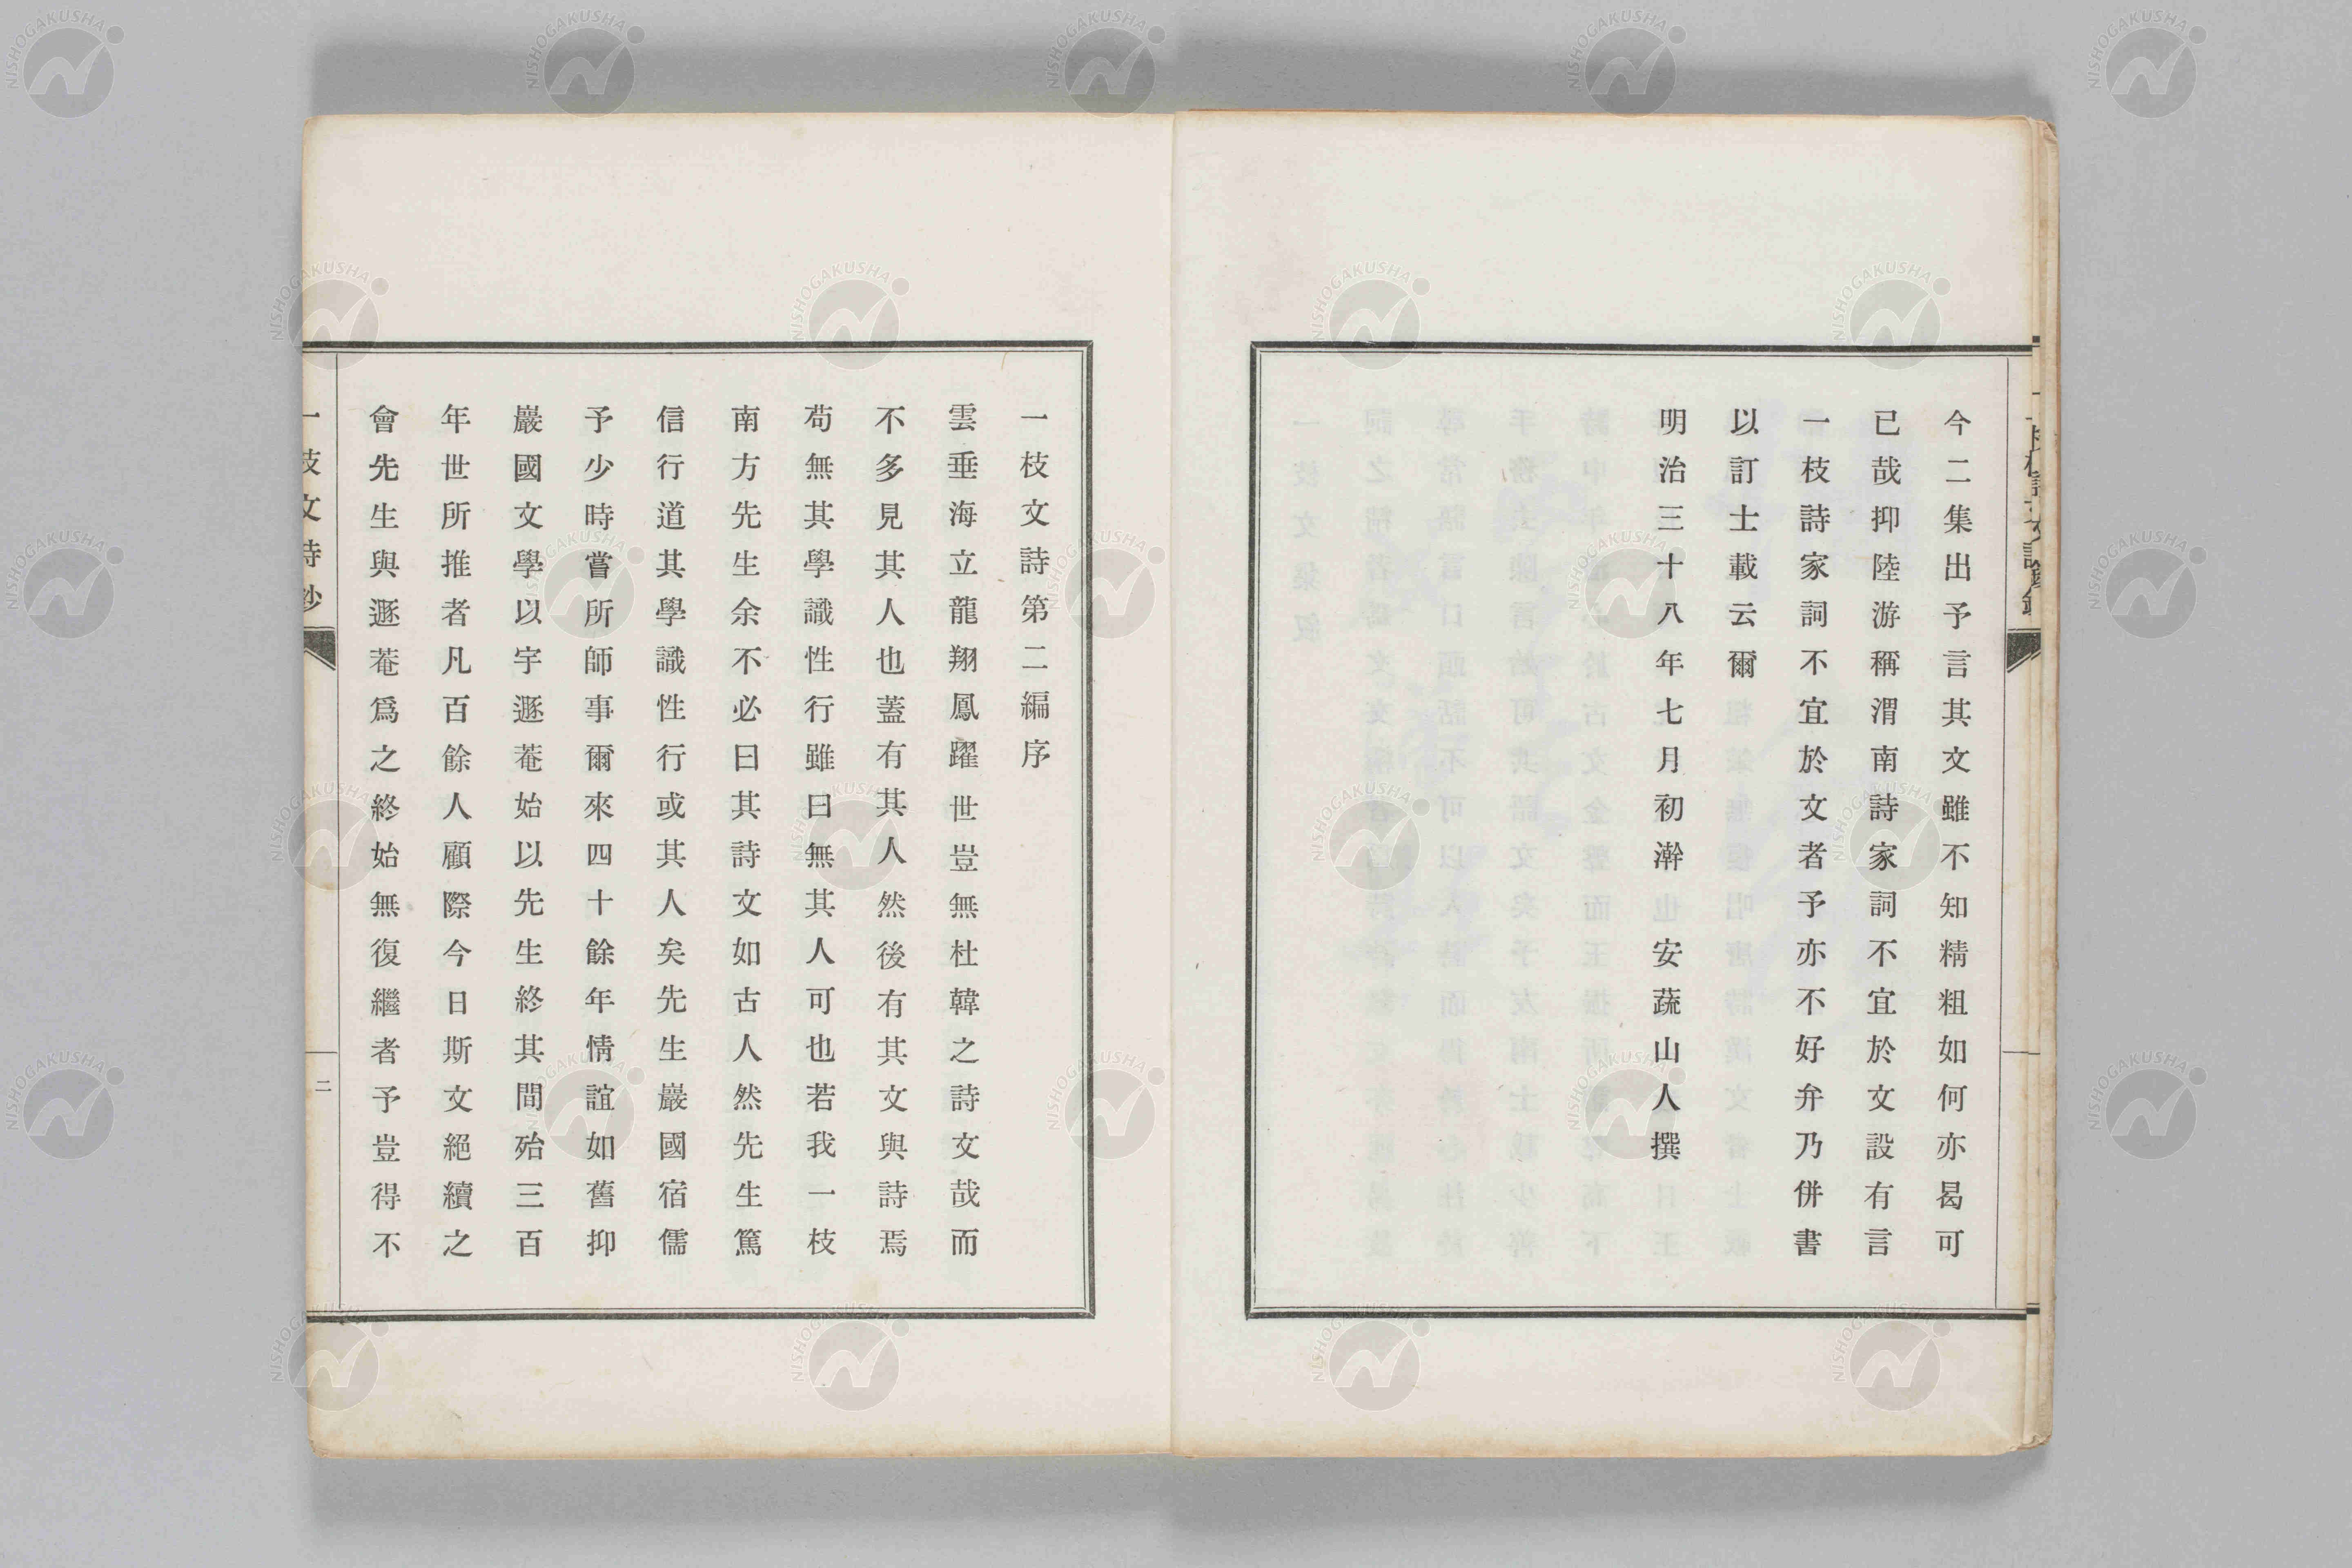 今二集出予言其文雖不知精粗如何亦曷可
已哉抑陸游稱渭南詩家詞不宜於文設有言
一枝詩家詞不宜於文者予亦不好弁乃併書
以訂士載云爾
明治三十八年七月初澣　安蔬山人撰
一枝文詩第二編序
雲垂海立龍翔鳳躍世豈無杜韓之詩文哉而
不多見其人也蓋有其人然後有其文與詩焉
苟無其學識性行雖曰無其人可也若我一枝
南方先生余不必曰其詩文如古人然先生篤
信行道其學識性行或其人矣先生巖國宿儒
予少時嘗所師事爾來四十餘年情誼如舊抑
巖國文學以宇遯菴始以先生終其間殆三百
年世所推者凡百餘人顧際今日斯文絕續之
會先生與遯菴爲之終始無復繼者予豈得不
一枝文詩鈔
二
NISHOGAKUSHA